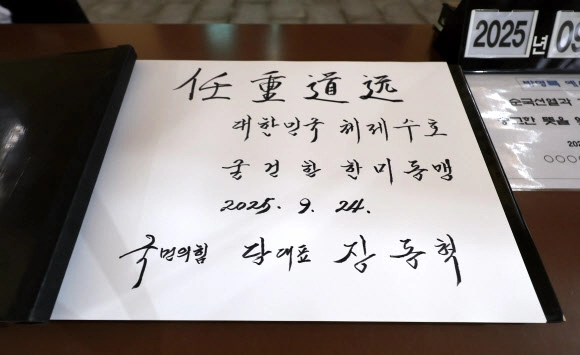 任重道远
대한민국 체제수호
굳건한 한미동맹
2025. 9. 24.
국민의힘 당대표 장동혁
2025년 09
방명록 예
순국선열과
뜻을
202
○○○○